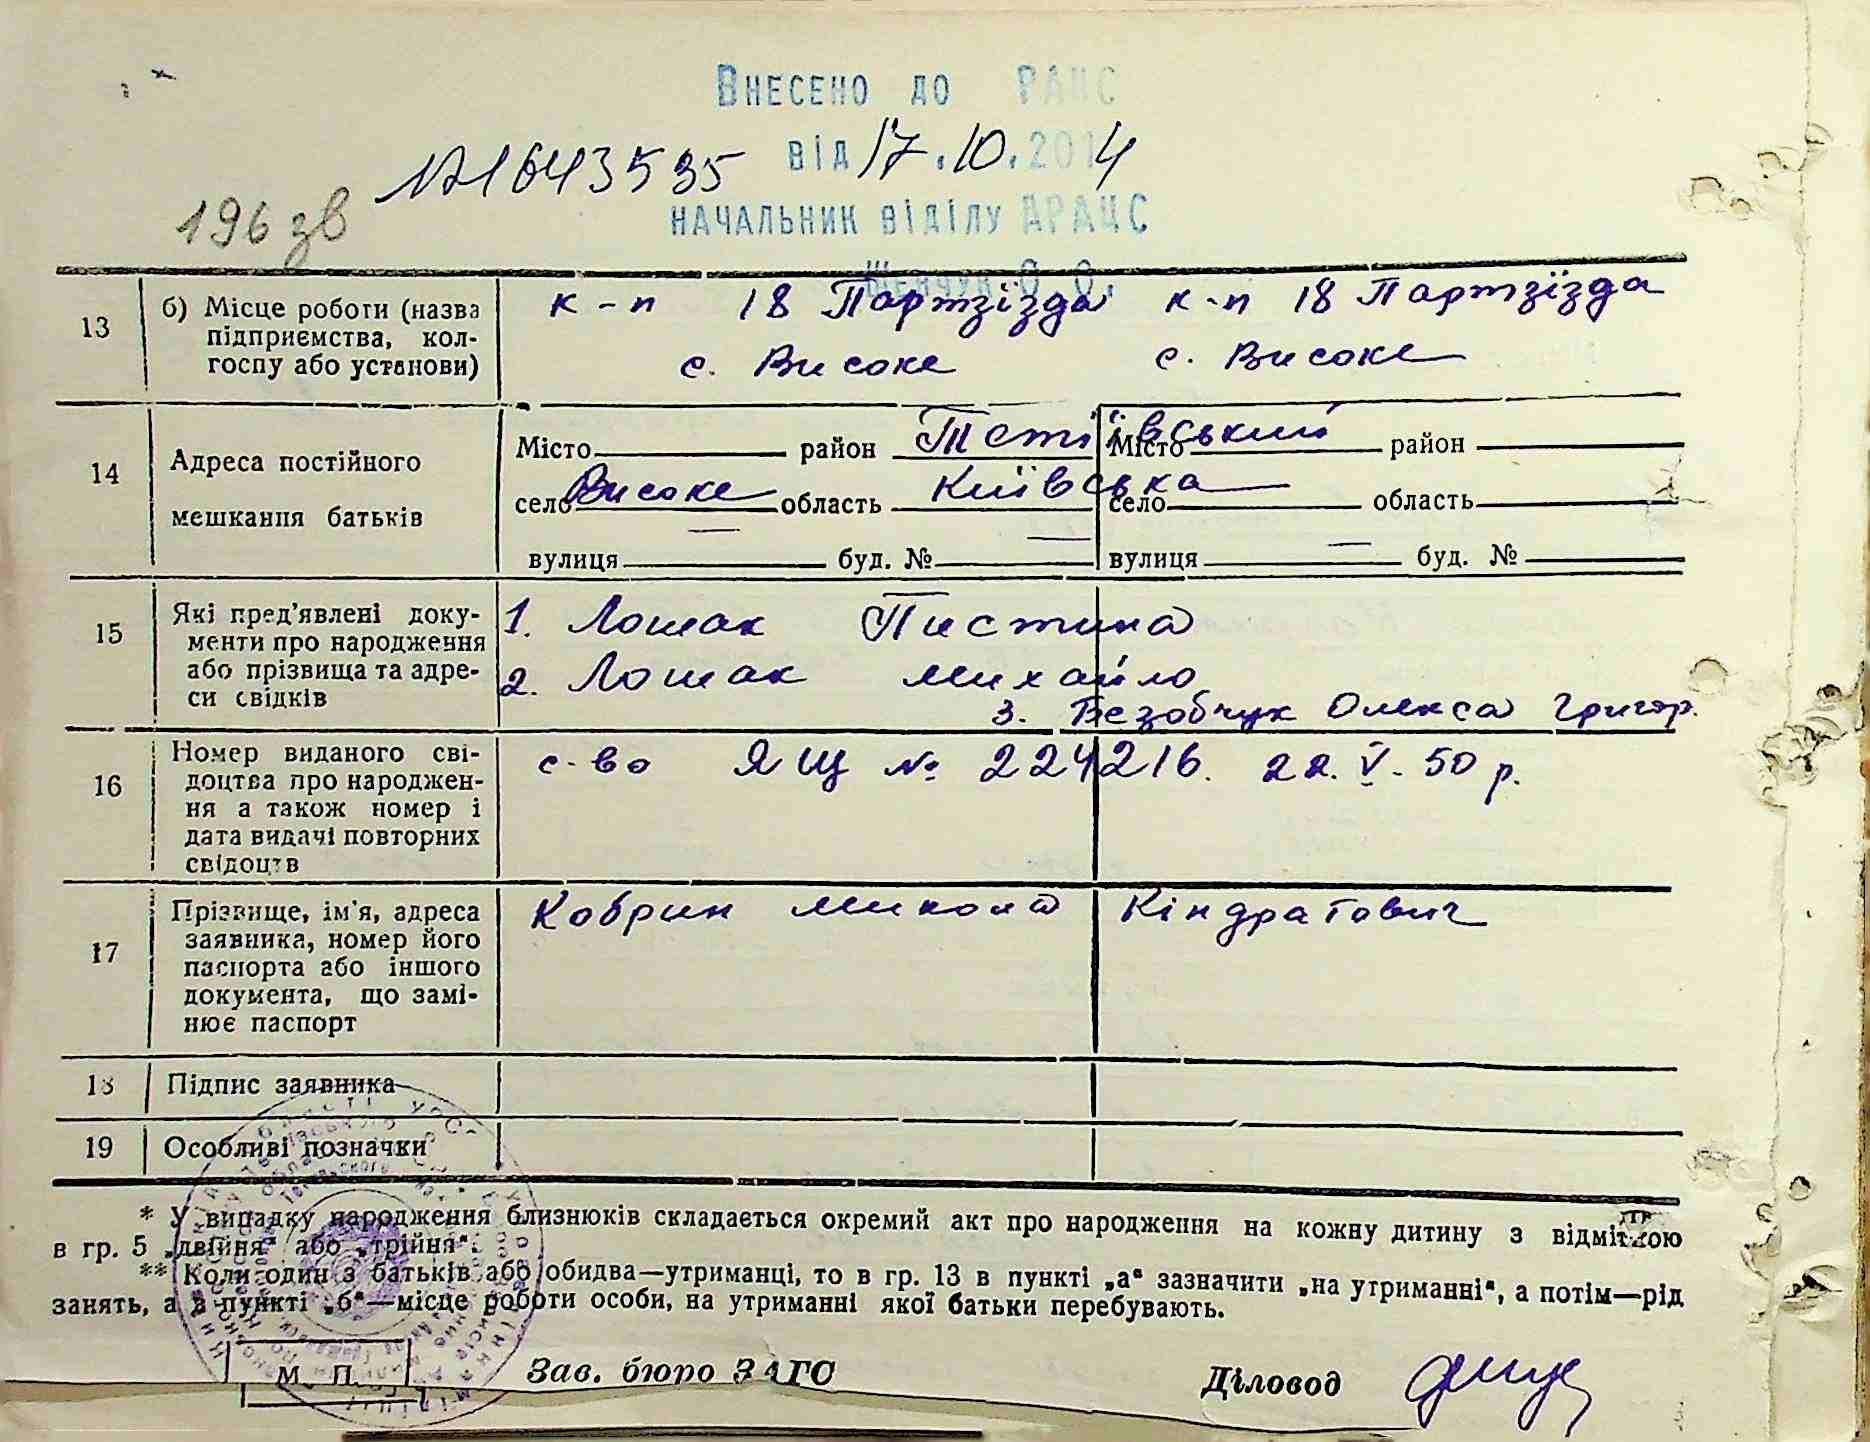 Внесено до РАЦС
№1643535 від 17.10.2014
196 зв
начальник відділу ДРАЦС
13 б) Місце роботи (назва підприємства, колгоспу або установи)
к-п 18 Партзїзда к-п 18 Партзїзда
с. Високе с. Високе
14 Адреса постійного мешкання батьків
Місто район Тетіївський Місто район
село Високе область Київська село область
вулиця — буд. № — вулиця — буд. №
15 Які пред'явлені доку-
менти про народження
або прізвища та адре-
си свідків
1. Лошак Пистина
2. Лошак Михайло
3. Безобчук Олекса Григор.
16 Номер виданого сві-
доцтва про народжен-
ня а також номер і
дата видачі повторних
свідоцтв
с-во ЯЩ № 224216. 22. V. 50 р.
17 Прізвище, ім'я, адреса
заявника, номер його
паспорта або іншого
документа, що замі-
нює паспорт
Кобрин Микола Кіндратович
18 Підпис заявника
19 Особливі позначки
* У випадку народження близнюків складається окремий акт про народження на кожну дитину з відміткою
в гр. 5 „двійня“ або „трійня“.
** Коли один з батьків або обидва—утриманці, то в гр. 13 в пункті „а“ зазначити „на утриманні“, а потім—рід
занять, а в пункті „б“—місце роботи особи, на утриманні якої батьки перебувають.
М. П. Зав. бюро ЗАГС Діловод